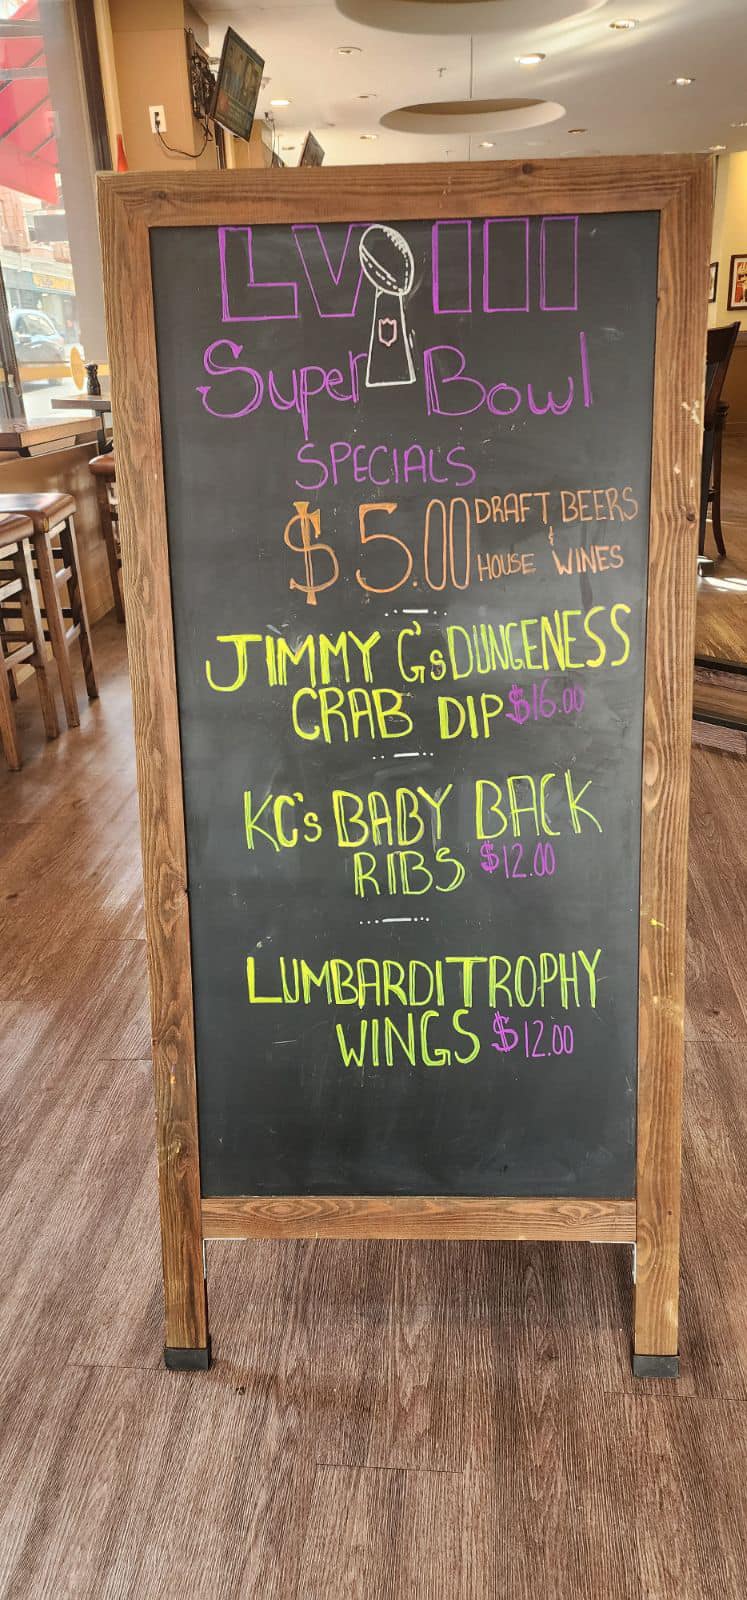 LVIII
Super Bowl
SPECIALS
$5.00 DRAFT BEERS
&
HOUSE WINES
JIMMY G's DUNGENESS
CRAB DIP $16.00
KC's BABY BACK
RIBS $12.00
LUMBARDI TROPHY
WINGS $12.00